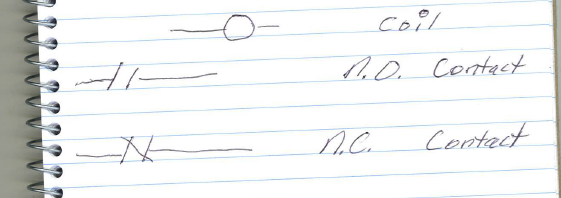 coil
N.O. Contact
N.C. Contact